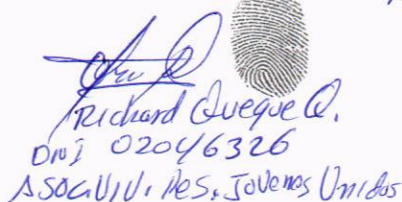 Richard Queque Q.
DNI 02046326
ASOC.VIV. RES. JOVENES UNIDOS